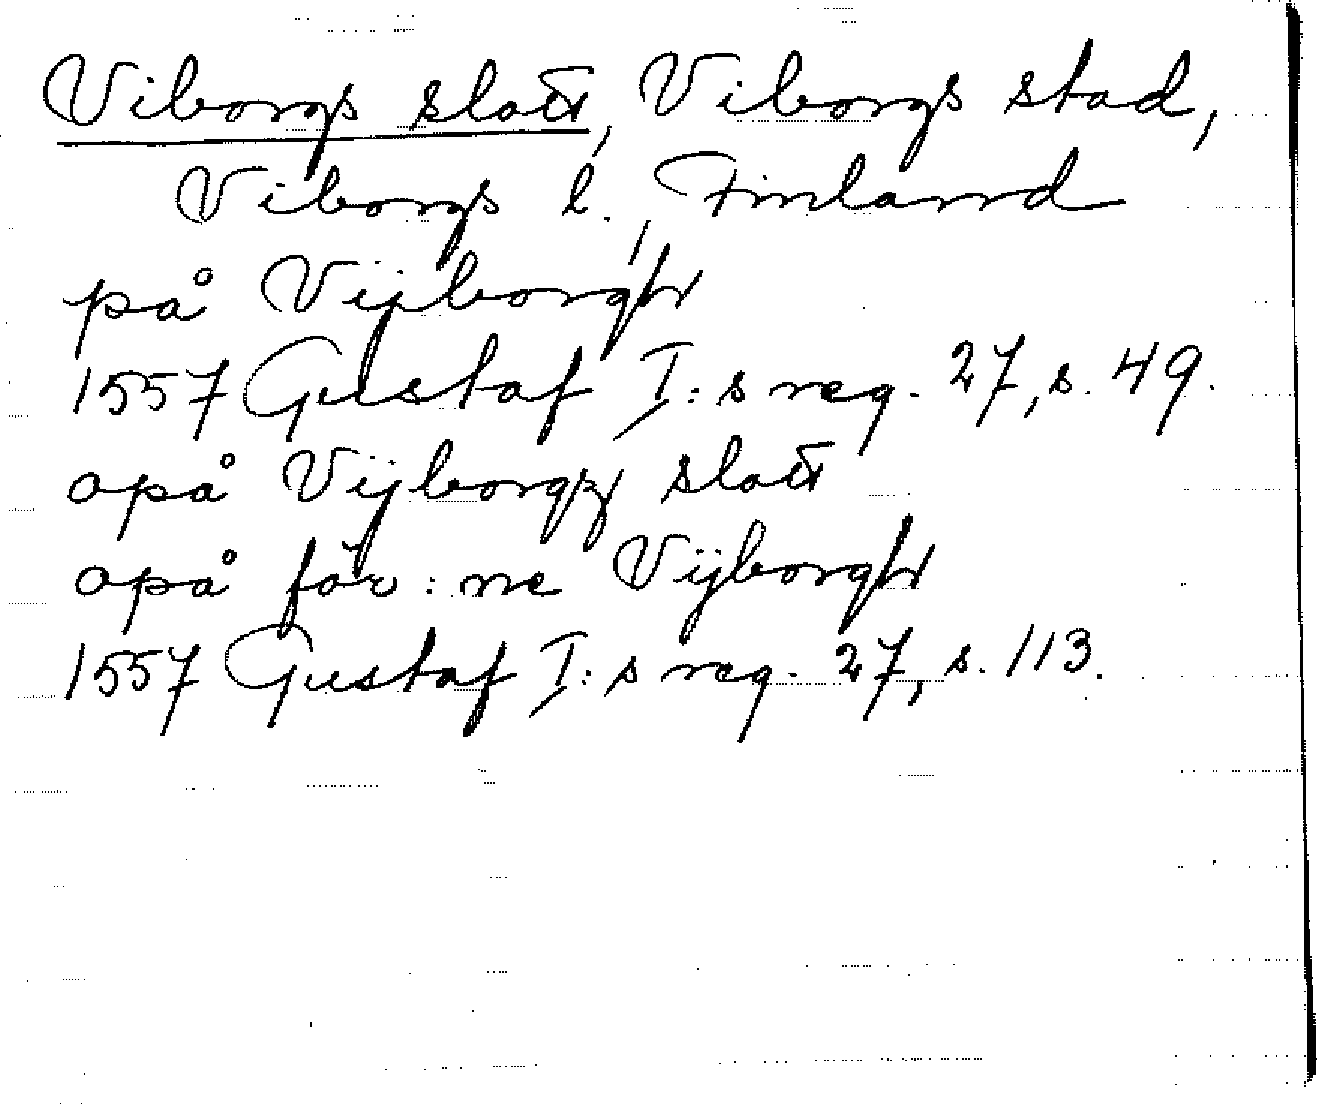 Viborgs slott, Viborgs stad,
Viborgs l., Finland
på Vijborgh
1557 Gustaf I:s reg. 27, s. 49.
opå Vijborgz slott
opå för:ne Vijborgh
1557 Gustaf I:s reg. 27, s. 113.